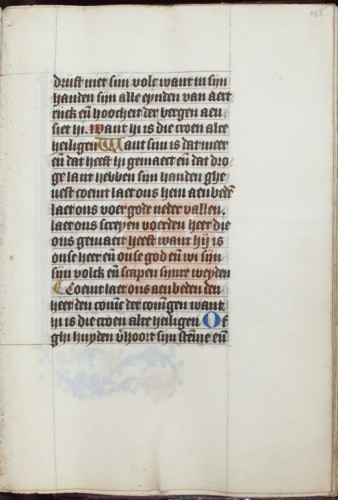 drust niet sijn volc want in sijn
handen sijn alle eynden van aert
rijck eñ hoocheit der bergen aen
siet hi. Want hi is die croen alre
heiligen Want sijn is dat meer
eñ dat heeft hi gemaect eñ dat dro
ge lant hebben sijn handen ghe
uest coemt laet ons hem aenbedẽ
laet ons voer gode neder vallen.
laet ons screyen voerden heer die
ons gemaect heeft want hij is
onse heer eñ onse god eñ wi sijn
sijn volck eñ scapen sijnre weyden
Coemt laet ons aenbeden den
heer den coninc der coningen want
hi is die croen alre heiligen Of
ghi huyden v̄hoort sijn stemme eñ